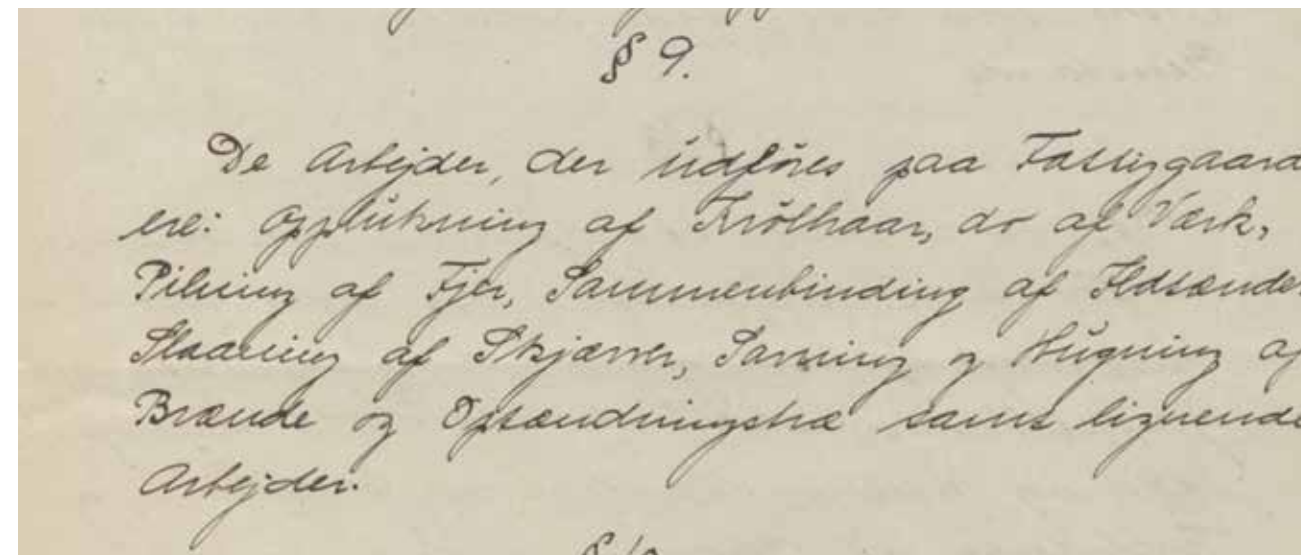 § 9.
De Arbejder, der udføres paa Fattiggaard
ere: Opplukning af Krølhaar, do af Værk,
Pilning af Fjer, Sammenbinding af Ildtænder
Slaaning af Skjærver, Savning og Hugning af
Brænde og Optændningstræ samt lignende
Arbejder.